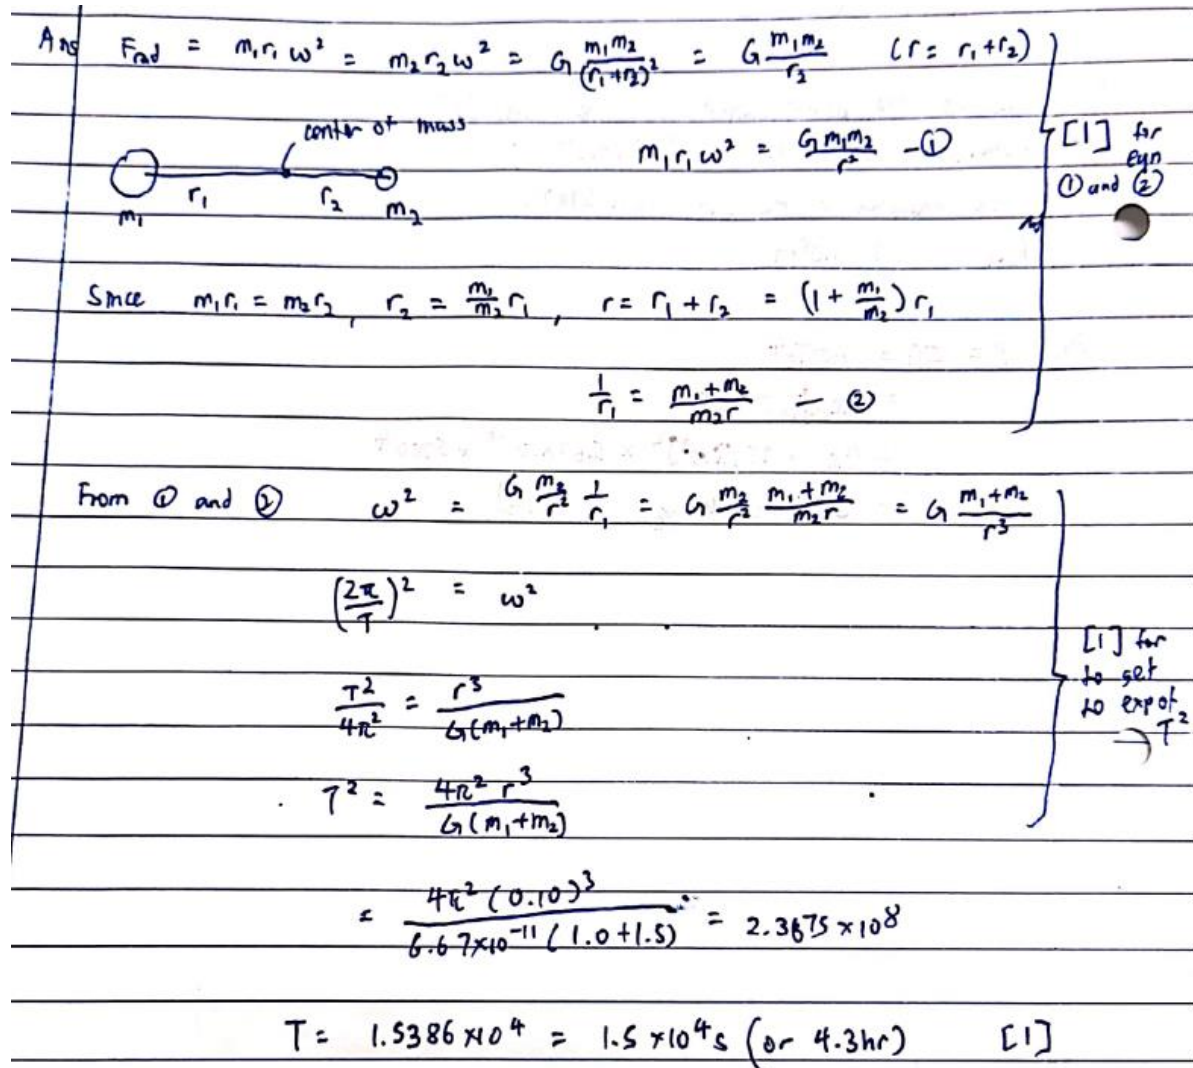 Ans Frad = m₁r₁ω² = m₂r₂ω² = G m₁m₂/(r₁+r₂)² = G m₁m₂/r₂ (r = r₁+r₂)
center of mass
m₁r₁ω² = Gm₁m₂/r² -①
[1] for
eqn
① and ②
r₁ r₂
m₁ m₂
Since m₁r₁ = m₂r₂, r₂ = m₁/m₂ r₁, r = r₁+r₂ = (1 + m₁/m₂) r₁
1/r₁ = m₁+m₂/m₂r — ②
From ① and ② ω² = G m₂/r² 1/r₁ = G m₂/r² m₁+m₂/m₂r = G m₁+m₂/r³
(2π/T)² = ω²
[1] for
to get
to exp of
→ T²
T²/4π² = r³/G(m₁+m₂)
T² = 4π² r³/G(m₁+m₂)
= 4π² (0.10)³/6.67×10⁻¹¹ (1.0+1.5) = 2.3675 ×10⁸
T = 1.5386 ×10⁴ = 1.5 ×10⁴ s (or 4.3hr) [1]